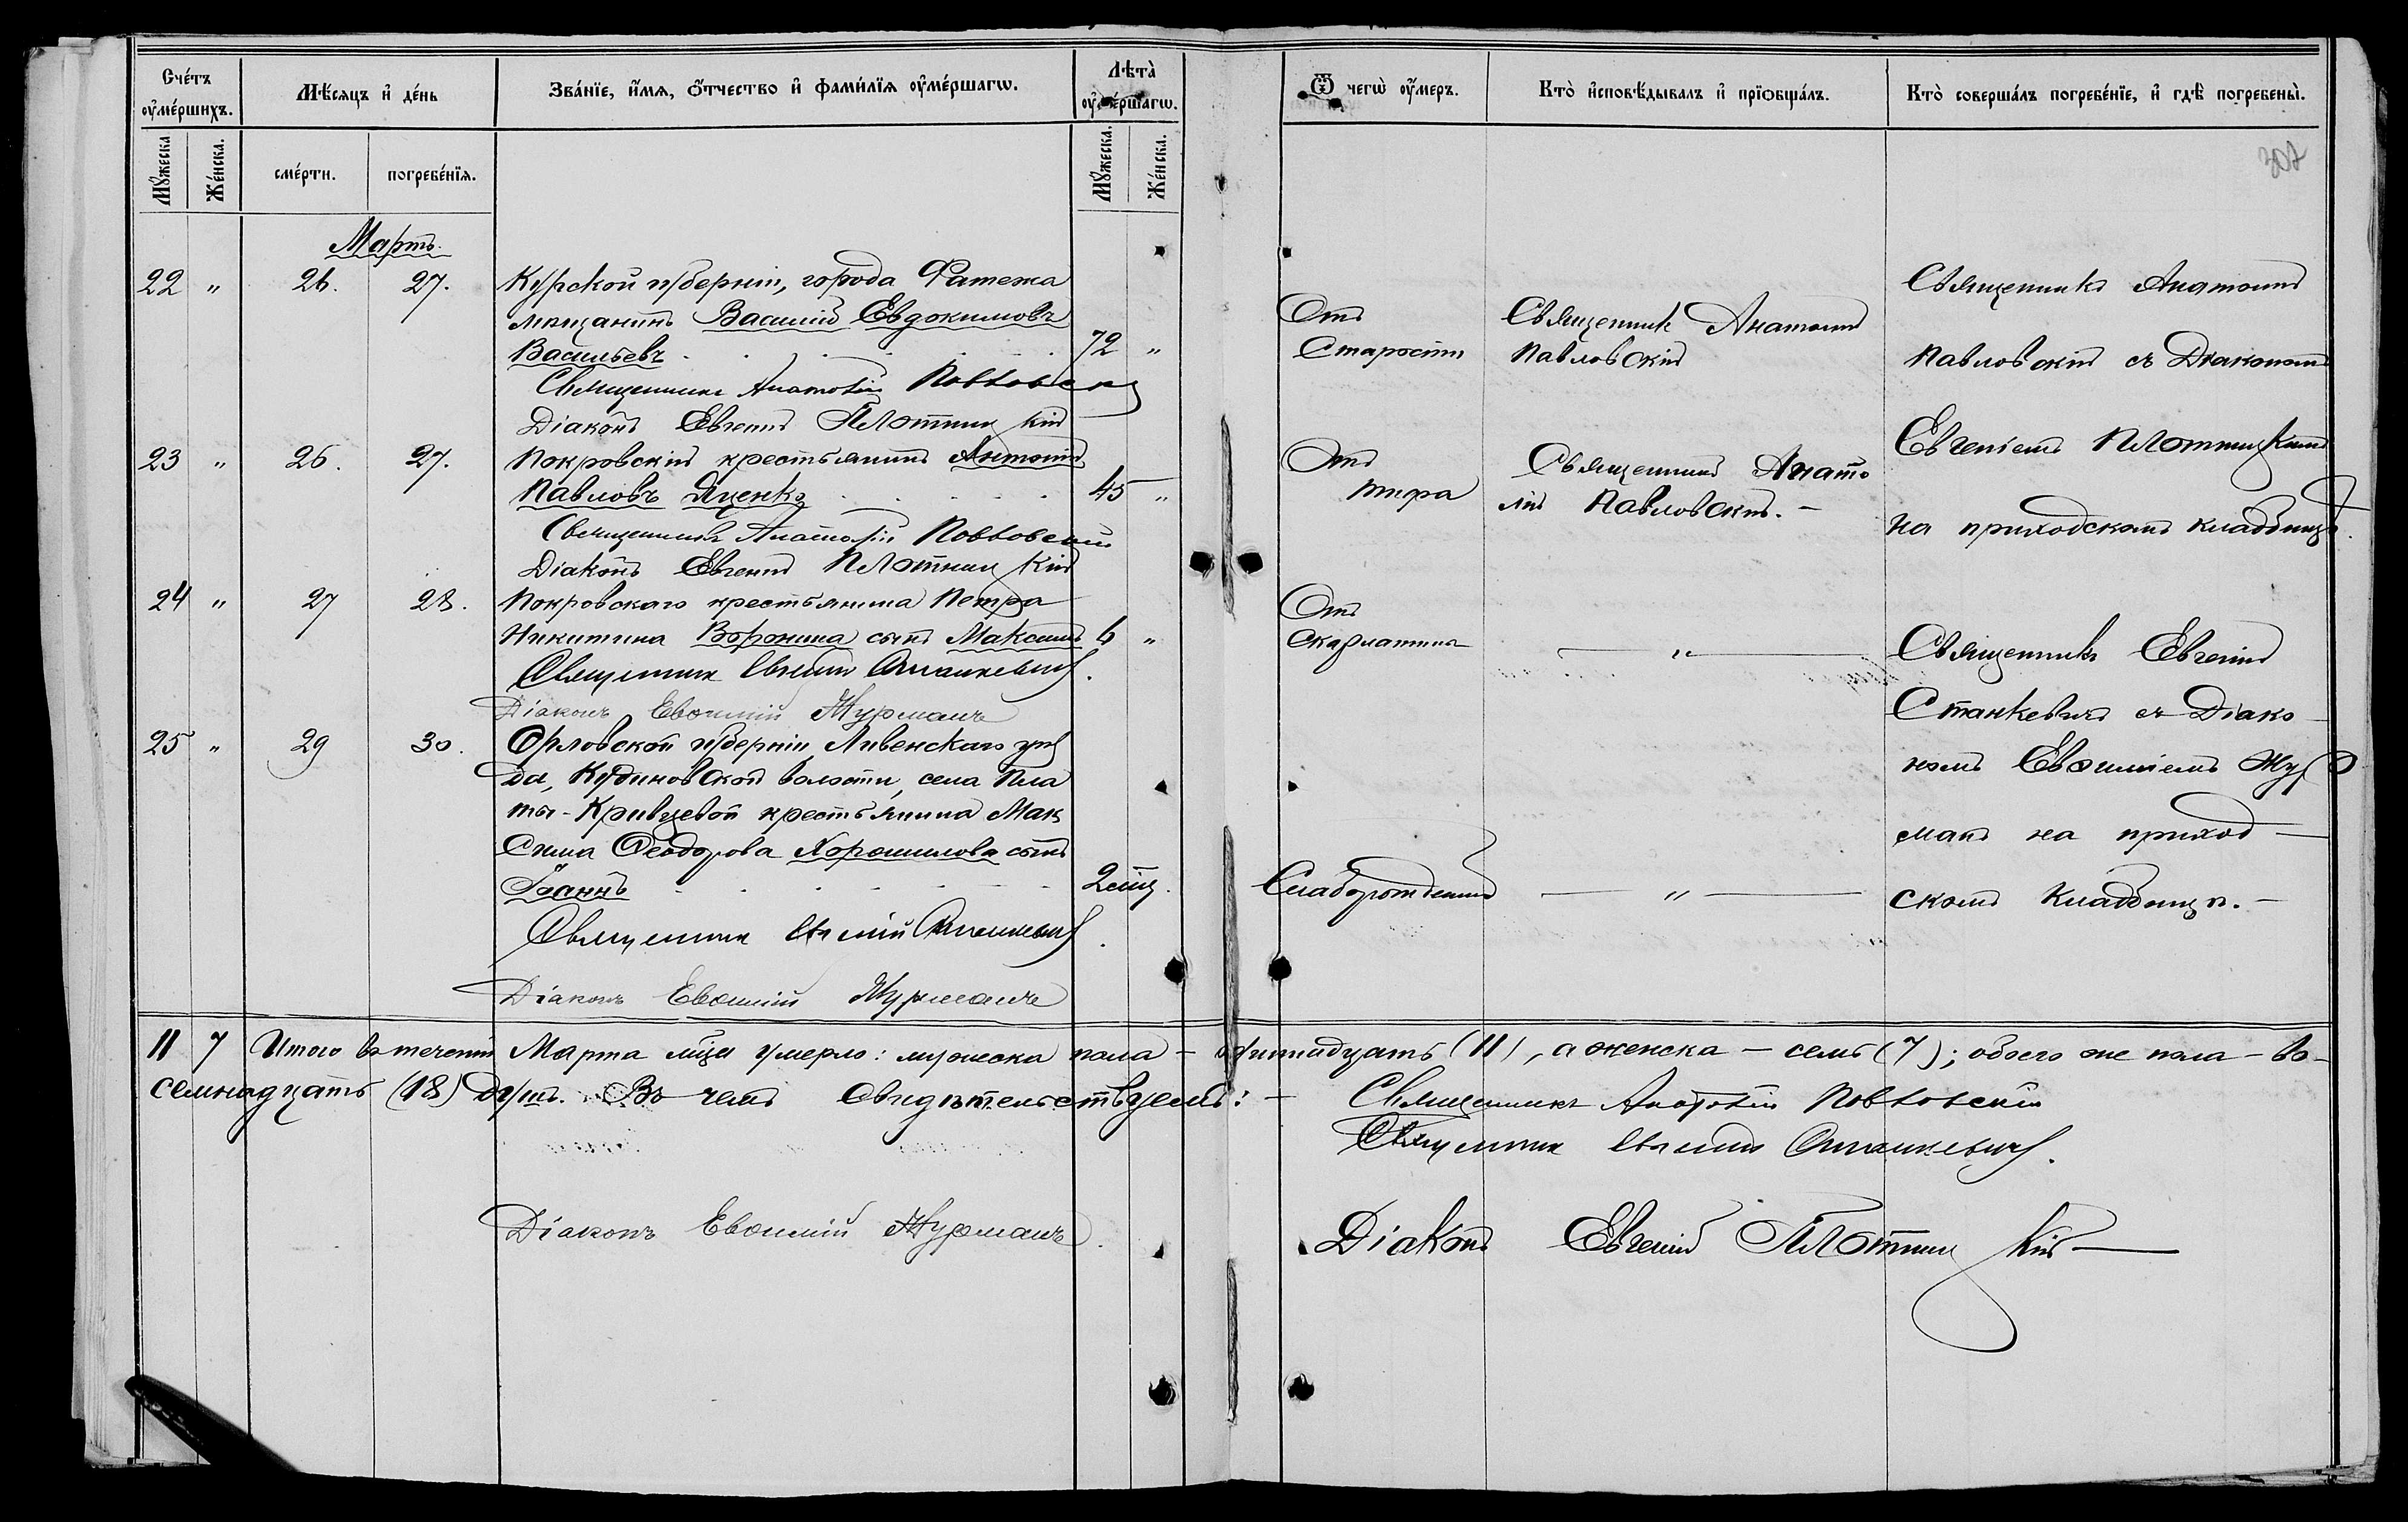 Счетъ умершихъ.
Мѣсяцъ и день
Званіе, имя, отчество и фамилія умершаго.
Лѣта умершаго.
Ѿ чего умеръ.
Кто исповѣдывалъ и пріобщалъ.
Кто совершалъ погребеніе, и гдѣ погребены.
Мужеска
Женска.
смерти.
погребенія.
Мужеска.
Женска.
307
Мартъ.
22 " 26. 27. Курской губерніи, города Фатежа
мѣщанинъ Василій Евдокимовъ
Васильевъ 72 "
Священникъ Анатолій Павловскій
Діаконъ Евгеній Плотницкій
Отъ
Старости
Священник Анатолій
Павловскій
Священникъ Анатолій
Павловскій съ Діакономъ
Евгеніемъ Плотницкимъ
на приходскомъ кладбищѣ.
23 " 26. 27. Покровскій крестьянинъ Антоній
Павловъ Яценко 45 "
Священникъ Анатолій Павловскій
Діаконъ Евгеній Плотницкій
Отъ
тифа
Священникъ Анато
лій Павловскій. -
24 " 27 28. Покровскаго крестьянина Петра
Никитина Воронина сынъ Максимъ 6 "
Священник Евгеній Станкевичъ.
Діаконъ Евѳимій Журманъ
Отъ
скарлатины
— " —
Священникъ Евгеній
Станкевичъ съ Діако-
номъ Евѳиміемъ Жур
манъ на приход-
скомъ Кладбищѣ. -
25 " 29 30. Орловской губерніи, Ливенскаго уѣз
да, Кудиновской волости, села Пла
ты-Кривцевой крестьянина Мак
сима Ѳеодорова Хорошилова сынъ
Іоаннъ 2 мц.
Священник Евгеній Станкевичъ.
Діаконъ Евѳимій Журманъ
Слаборожденій
— " —
11 7 Итого въ теченіи Марта мѣсяца умерло: мужеска пола - одинадцать (11), а женска - семь (7); обоего же пола - во-
семнадцать (18) душъ. Въ чемъ свидѣтельствуемъ: -
Священникъ Анатолій Павловскій
Священник Евгеній Станкевичъ.
Діаконъ Евѳимій Журманъ
Діаконъ Евгеній Плотницкій